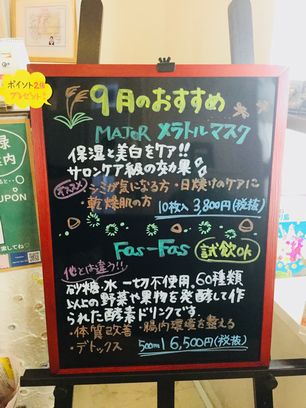 ポイント2倍
プレゼント!
9月のおすすめ
MAJOR メラトルマスク
保湿と美白をケア!!
サロンケア級の効果
オススメ
・シミが気になる方・日焼けのケアに
・乾燥肌の方
10枚入 3,800円(税抜)
Fas-Fas 試飲OK
他とは違う!!
砂糖・水 一切不使用。60種類
以上の野菜や果物を発酵して作
られた酵素ドリンクです。
・体質改善・腸内環境を整える
・デトックス
500ml 6,500円(税抜)
UPON